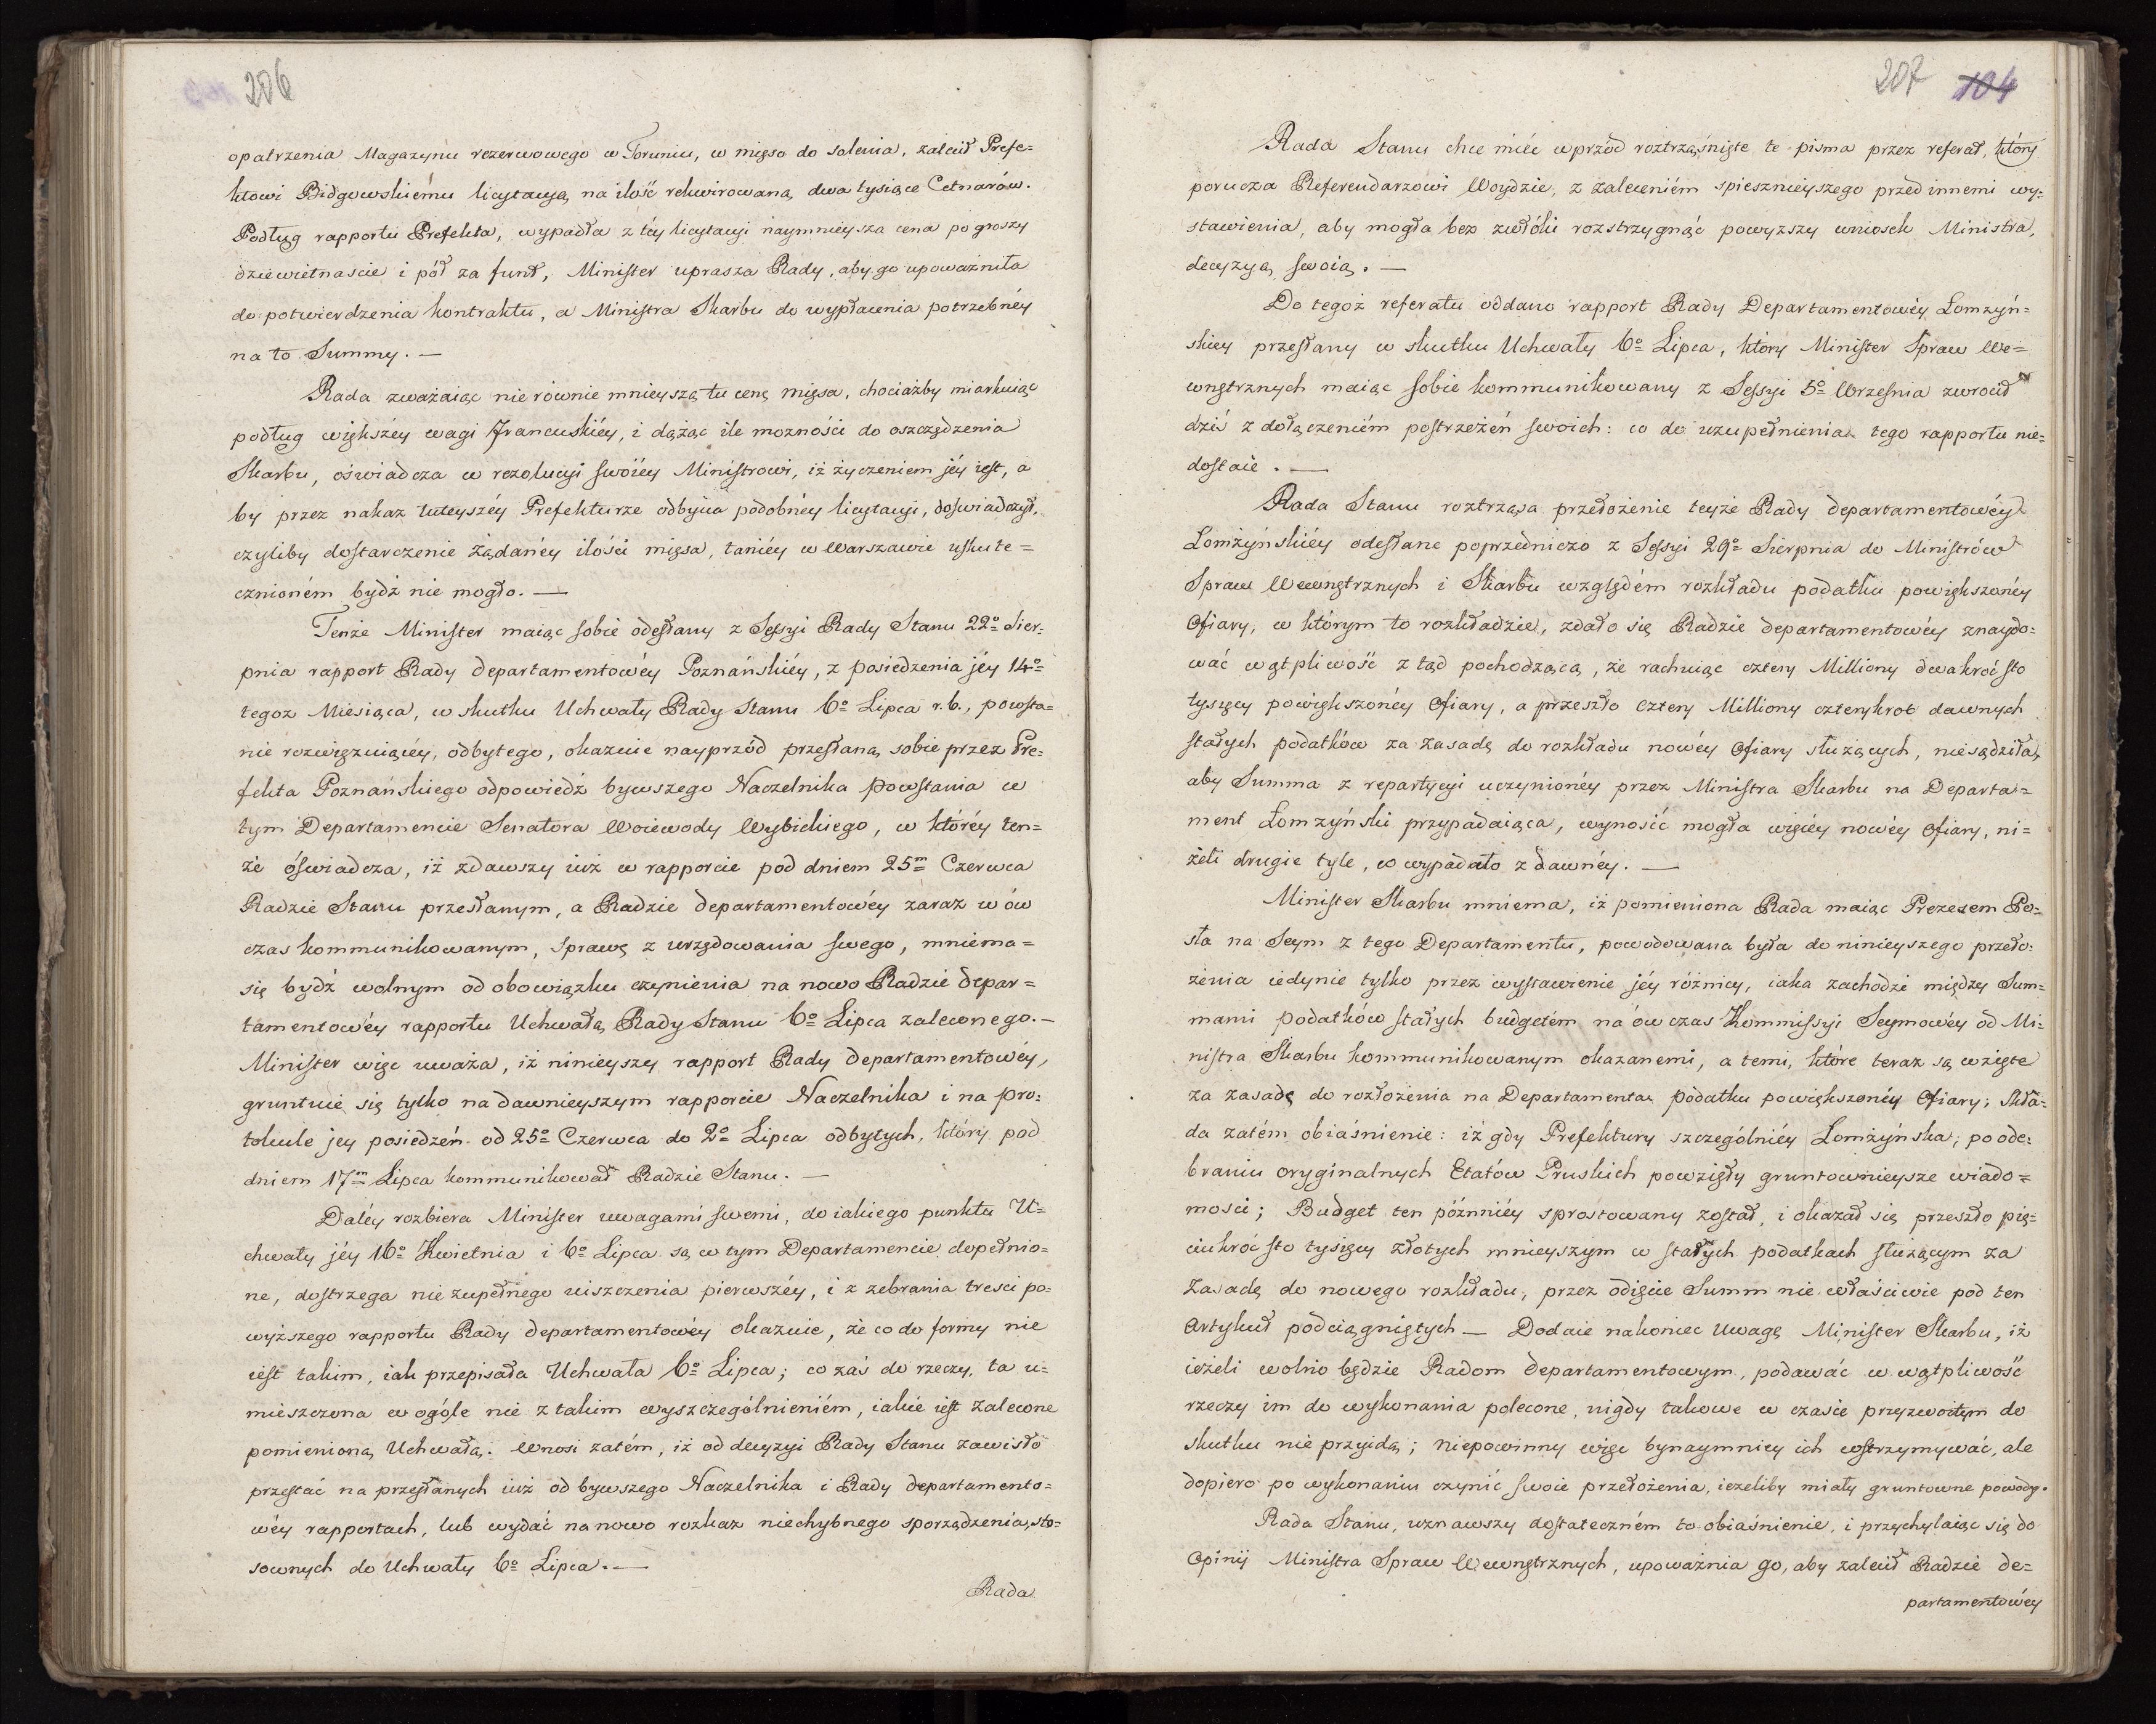 206
opatrzenia Magazynu rezerwowego w Toruniu, w mięso do solenia, zalecił Prefe=
ktowi Bidgowskiému licytacyą, na ilość rekwirowaną, dwa tysiące Cetnarów.
Podług rapportu Prefekta, wypadła z téy licytacyi naymnieysza cena po groszy
dziewietnascie i pół za funt, Minister uprasza Rady, aby go upoważniła
do potwierdzenia kontraktu, a Ministra Skarbu do wypłacenia potrzebnéy
na to Summy. —
Rada zważaiąc nierównie mnieyszą tu cenę mięsa, chociażby miarkuiąc
podług większéy wagi Francuskiéy, i dążąc ile możności do oszczędzenia
Skarbu, oświadcza w rezolucyi swoiéy Ministrowi, iż życzeniem jéy iest, a
by przez nakaz tuteyszéy Prefekturze odbycia podobnéy licytacyi, doświadczył,
czyliby dostarczenie żądanéy ilości mięsa, taniéy w Warszawie uskute=
cznioném bydź nie mogło. —
Tenże Minister maiąc sobie odesłany z Sessyi Rady Stanu 22º Sier=
pnia rapport Rady departamentowéy Poznańskiéy, z posiedzenia jéy 14º
tegoż Miesiąca, w skutku Uchwały Rady Stanu 6º Lipca r. b., powsta=
nie rozwięzuiącéy, odbytego, okazuie nayprzód przesłaną sobie przez Pre=
fekta Poznańskiego odpowiedź bywszego Naczelnika powstania w
tym Departamencie Senatora Woiewody Wybickiego, w któréy ten=
że óświadcza, iż zdawszy iuż w rapporcie pod dniem 25m Czerwca
Radzie Stanu przesłanym, a Radzie departamentowéy zaraz w ów
czas kommunikowanym, sprawę z urzędowania swego, mniema=
się bydź wolnym od obowiązku czynienia na nowo Radzie depar=
tamentowéy rapportu Uchwałą Rady Stanu 6º Lipca zaleconego. —
Minister więc uważa, iż ninieyszy rapport Rady departamentowéy,
gruntuie się tylko na dawnieyszym rapporcie Naczelnika i na pro=
tokule jey posiedzeń od 25º Czerwca do 2º Lipca odbytych, który pod
dniem 17m Lipca kommunikował Radzie Stanu. —
Daléy rozbiera Minister uwagami swemi, do iakiego punktu U=
chwały jéy 16º Kwietnia i 6º Lipca są w tym Departamencie dopełnio=
ne, dostrzega nie zupełnego uiszczenia pierwszéy, i z zebrania tresci po=
wyższego rapportu Rady departamentowéy okazuie, że co do formy nie
iest takim, iak przepisała Uchwała 6º Lipca; co zaś do rzeczy, ta u=
mieszczona w ogóle nie z takim wyszczególnieniém, iakie iest zalecone
pomienioną Uchwałą. Wnosi zatém, iż od decyzyi Rady Stanu zawisło
przestać na przesłanych iuż od bywszego Naczelnika i Rady departamento=
wéy rapportach, lub wydać na nowo rozkaz niechybnego sporządzenia, sto=
sownych do Uchwały 6º Lipca. —
Rada
207 104
Rada Stanu chce mieć wprzód roztrząśnięte te pisma przez referat, który
porucza Referendarzowi Woydzie, z zaleceniém spiesznieyszego przed innemi wy=
stawienia, aby mogła bez zwłóki rozstrzygnąć powyższy wniosek Ministra,
decyzyą swoią. —
Do tegoż referatu oddano rapport Rady Departamentowéy Łomżyń=
skiey przesłany w skutku Uchwały 6º Lipca, który Minister Spraw We=
wnętrznych maiąc sobie kommunikowany z Sessyi 5º Września zwrocił
dziś z dołączeniém postrzeżeń swoich: co do uzupełnienia tego rapportu nie=
dostaie. —
Rada Stanu roztrząsa przełożenie teyże Rady departamentowéy
Łomżyńskiéy odesłane poprzedniczo z Sessyi 29º Sierpnia do Ministrów
Spraw Wewnętrznych i Skarbu względém rozkładu podatku powiększonéy
Ofiary, w którym to rozkładzie, zdało się Radzie departamentowéy znaydo=
wać wątpliwość z tąd pochodzącą, że rachuiąc cztery Milliony dwakroć sto
tysięcy powiększonéy Ofiary, a przeszło cztery Milliony czterykroć dawnych
stałych podatków za zasadę do rozkładu nowéy Ofiary służących, niesądziła,
aby Summa z repartycyi uczynionéy przez Ministra Skarbu na Departa=
ment Łomżyński przypadaiąca, wynosić mogła więcéy nowéy Ofiary, ni=
żeli drugie tyle, co wypadało z dawnéy. —
Minister Skarbu mniema, iż pomieniona Rada maiąc Prezesem Po=
sła na Seym z tego Departamentu, powodowana była do ninieyszego przeło=
żenia iedynie tylko przez wystawienie jéy różnicy, iaka zachodzi między Sum=
mami podatków stałych budgetém na ów czas Kommissyi Seymowéy od Mi=
nistra Skarbu kommunikowanym okazanemi, a temi, które teraz są wzięte
za zasadę do rozłożenia na Departamenta podatku powiększonéy Ofiary; Skła=
da zatém obiaśnienie: iż gdy Prefektury szczególniéy Łomżyńska, po ode=
braniu oryginalnych Etatów Pruskich powzięły gruntownieysze wiado=
mości; Budget ten późnniéy sprostowany został, i okazał się przeszło pię=
ciukroć sto tysięcy złotych mnieyszym w stałych podatkach służącym za
Zasadę do nowego rozkładu, przez odięcie Summ nie właściwie pod ten
Artykuł podciągniętych — Dodaie nakoniec Uwagę Minister Skarbu, iż
ieżeli wolno będzie Radom departamentowym, podawać w wątpliwość
rzeczy im do wykonania polecone, nigdy takowe w czasie przyzwoitym do
skutku nie przyidą; niepowinny więc bynaymniey ich wstrzymywać, ale
dopiero po wykonaniu czynić swoie przełożenia, ieżeliby miały gruntowne powody.
Rada Stanu, uznawszy dostateczném to obiaśnienie, i przychylaiąc się do
Opinij Ministra Spraw Wewnętrznych, upoważnia go, aby zalecił Radzie de=
partamentowéy